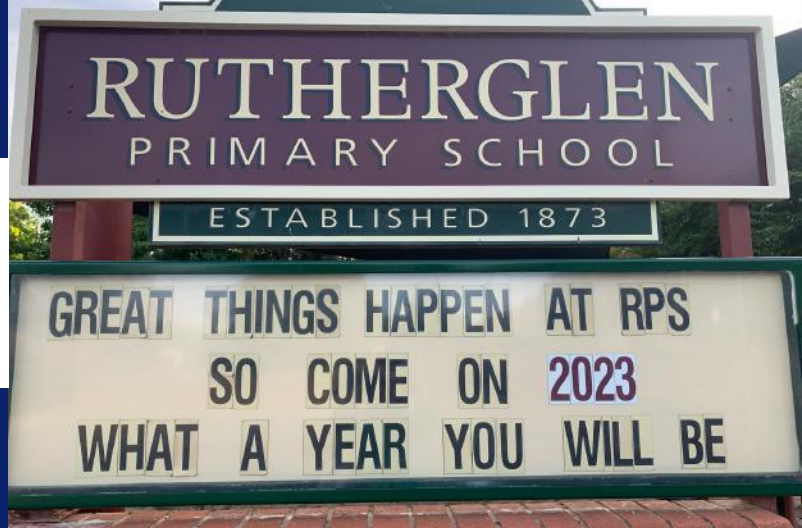 RUTHERGLEN
PRIMARY SCHOOL
ESTABLISHED 1873
GREAT THINGS HAPPEN AT RPS
SO COME ON 2023
WHAT A YEAR YOU WILL BE